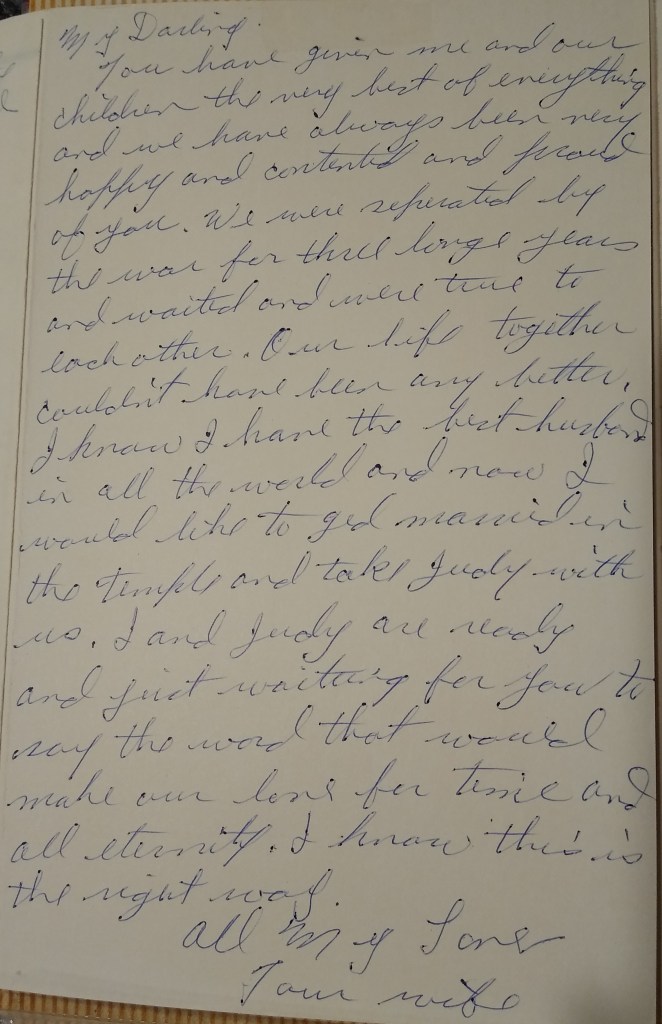 My Darling.
You have given me and our
children the very best of everything
and we have always been very
happy and contented and proud
of you. We were seperated by
the war for three longe years
and waited and were true to
each other. Our life together
couldn't have been any better.
I know I have the best husband
in all the world and now I
would like to get married in
the temple and take Judy with
us. I and Judy are ready
and just waiting for you to
say the word that would
make our love for time and
all eternity. I know this is
the right way.
All My Love
Your wife